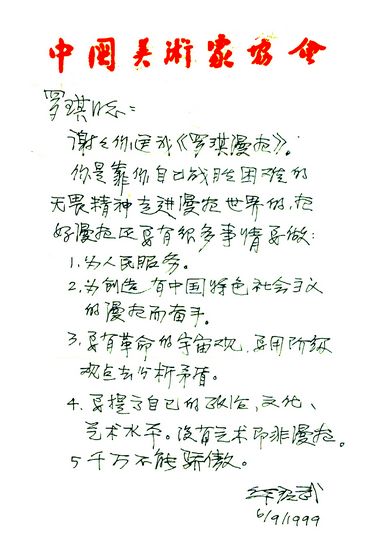 中国美術家协会
罗琪同志：
谢々你送我《罗琪漫画》。
你是靠你自己战胜困难的
无畏精神走进漫画世界的，画
好漫画还要有很多事情要做：
1.为人民服务。
2.为創造有中国特色社会主义
的漫画而奋斗。
3.要有革命的宇宙观，要用阶级
观点去分析矛盾。
4.要提高自己的政治、文化、
艺术水平。没有艺术即非漫画。
5千万不能骄傲。
6/9/1999